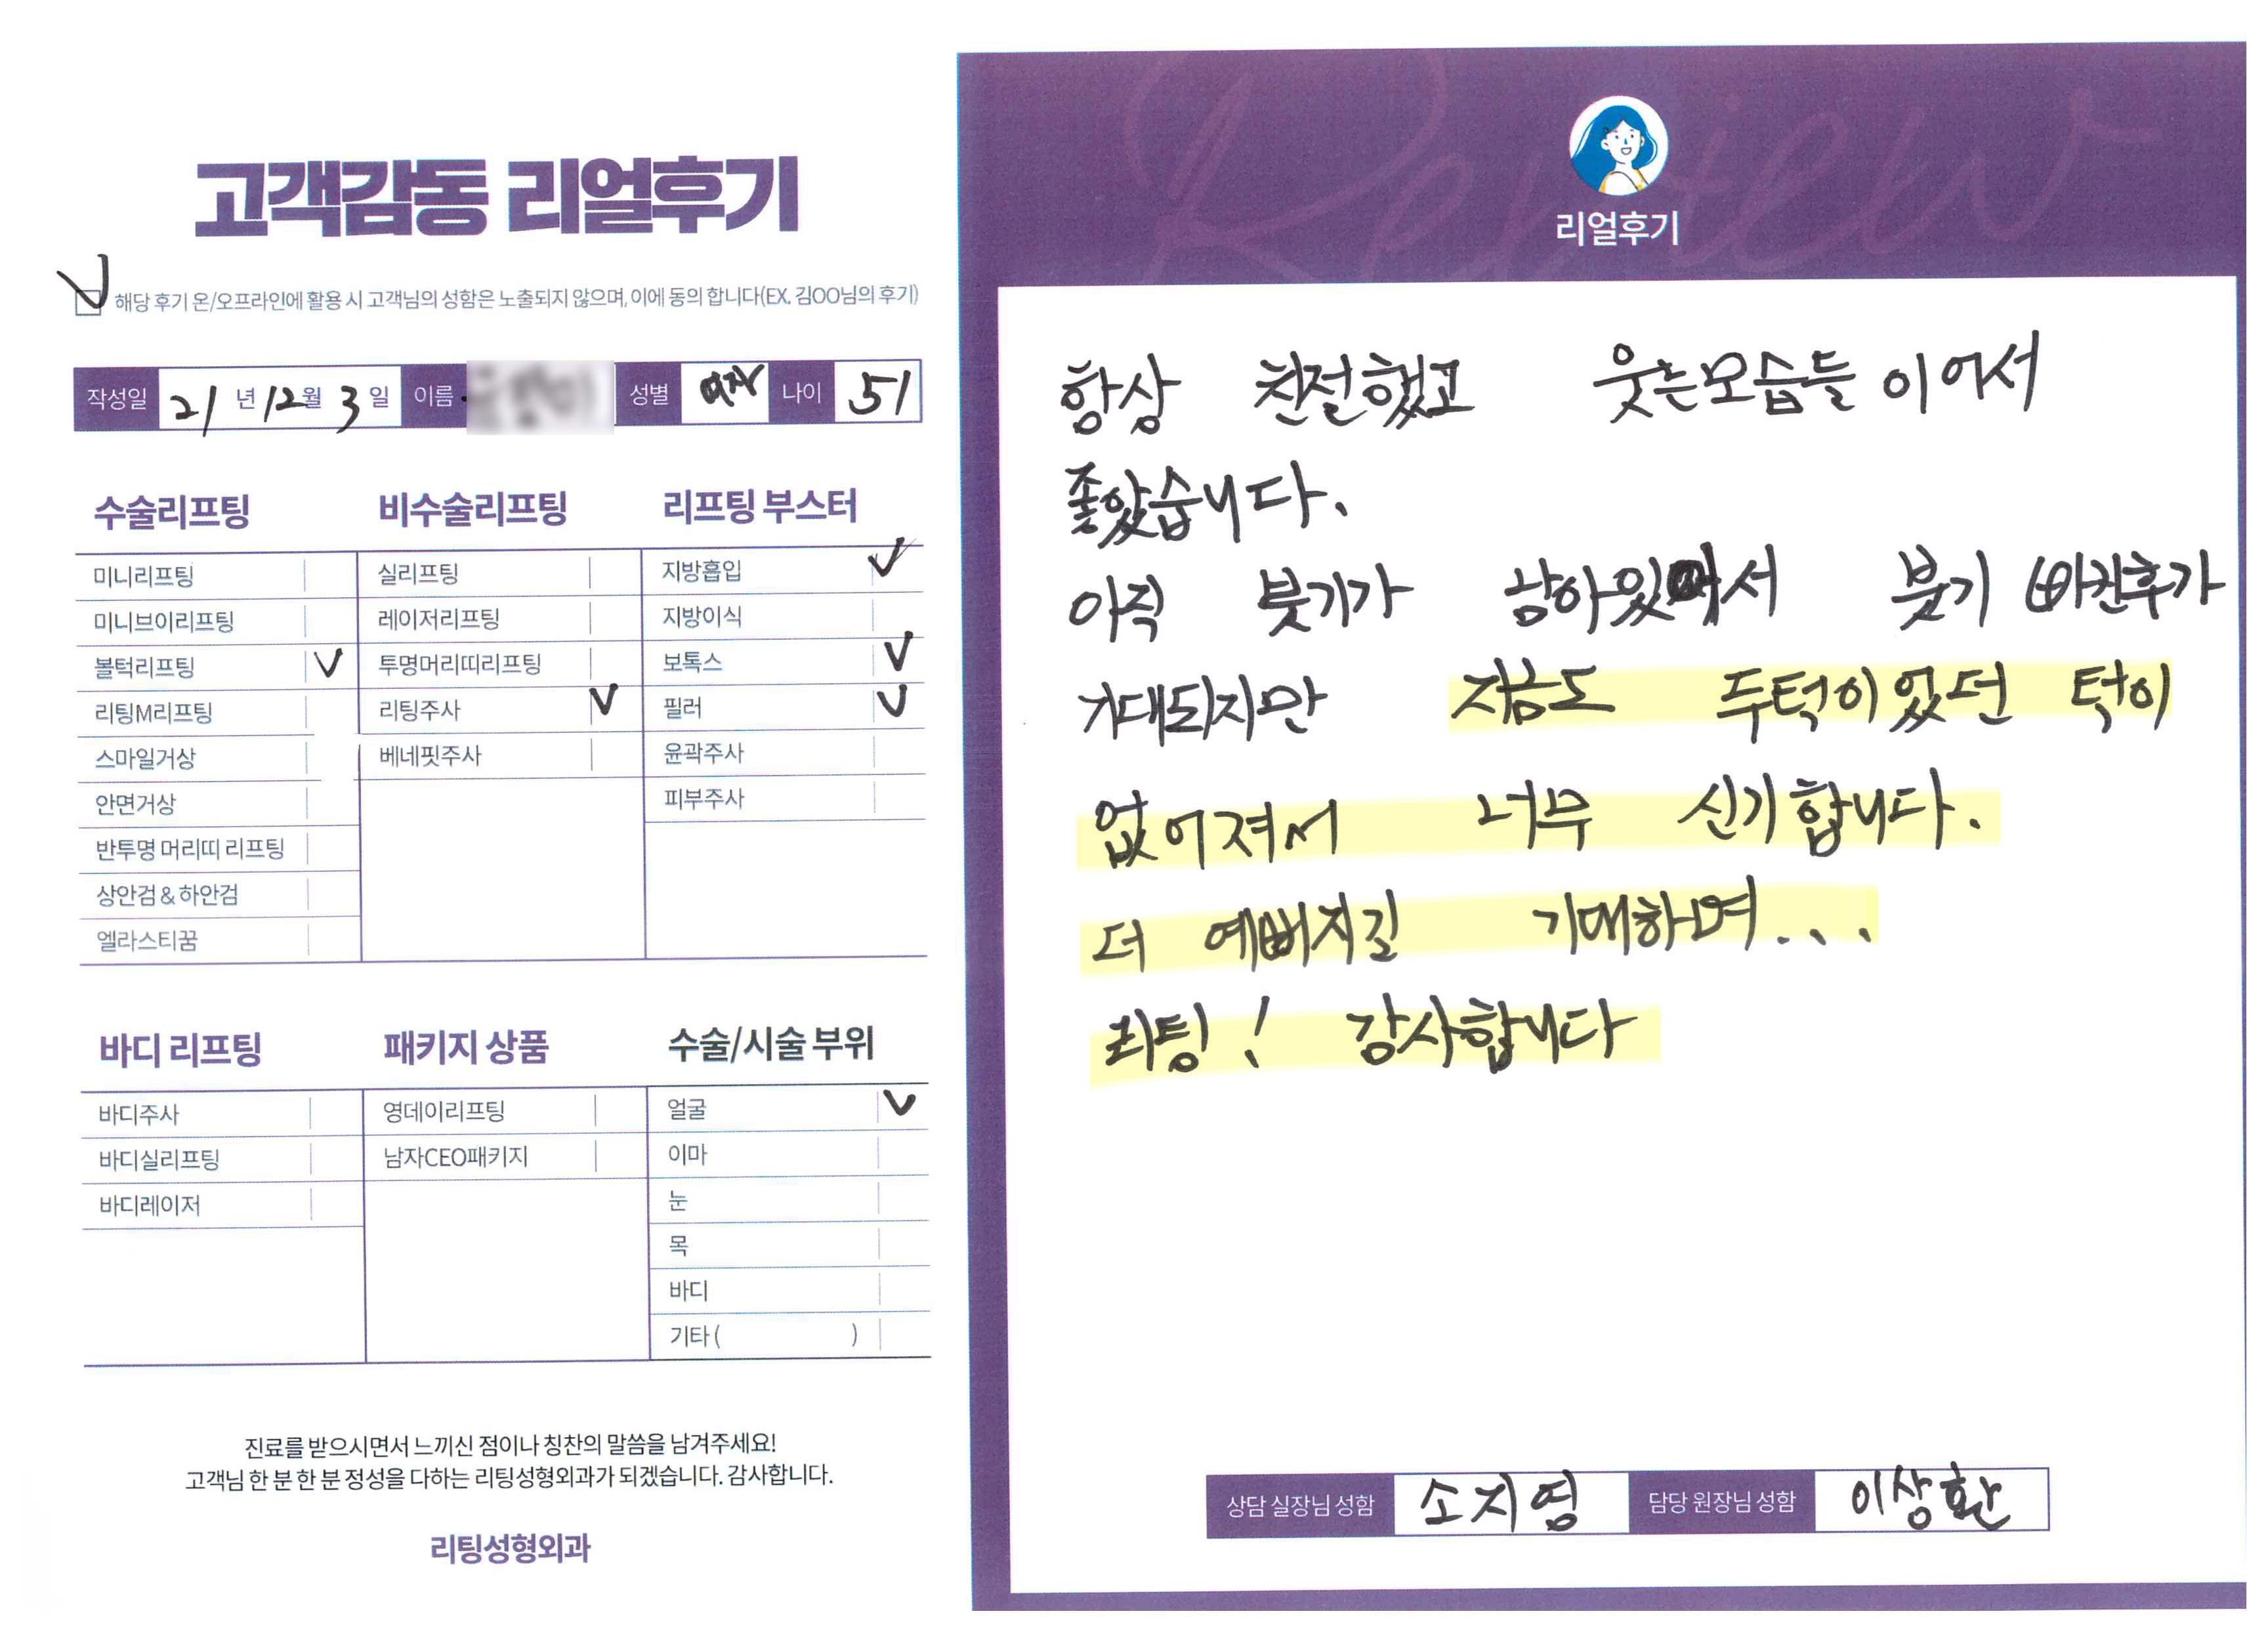 고객감동 리얼후기
해당 후기 온/오프라인에 활용 시 고객님의 성함은 노출되지 않으며, 이에 동의 합니다(EX. 김OO님의 후기)
작성일 21년 12월 3일 이름 성별 여자 나이 51
수술리프팅
미니리프팅
미니브이리프팅
볼턱리프팅 V
리팅M리프팅
스마일거상
안면거상
반투명 머리띠 리프팅
상안검 & 하안검
엘라스티꿈
비수술리프팅
실리프팅
레이저리프팅
투명머리띠리프팅
리팅주사 V
베네핏주사
리프팅 부스터
지방흡입 V
지방이식
보톡스 V
필러 V
윤곽주사
피부주사
바디 리프팅
바디주사
바디실리프팅
바디레이저
패키지 상품
영데이리프팅
남자CEO패키지
수술/시술 부위
얼굴 V
이마
눈
목
바디
기타 ( )
진료를 받으시면서 느끼신 점이나 칭찬의 말씀을 남겨주세요!
고객님 한 분 한 분 정성을 다하는 리팅성형외과가 되겠습니다. 감사합니다.
리팅성형외과
Review
리얼후기
항상 친절했고 웃는모습들 이어서
좋았습니다.
아직 붓기가 남아있어서 붓기 빠진후가
기대되지만 지금도 두턱이었던 턱이
없어져서 너무 신기합니다.
더 예뻐지길 기대하며...
리팅! 감사합니다
상담 실장님 성함 소지영 담당 원장님 성함 이상환